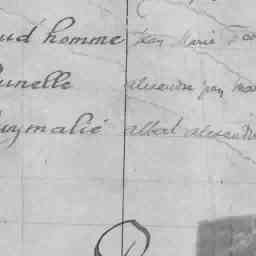 ud homme Jean Marie
unelle alexandre jean mar
uymalié albert alexandre